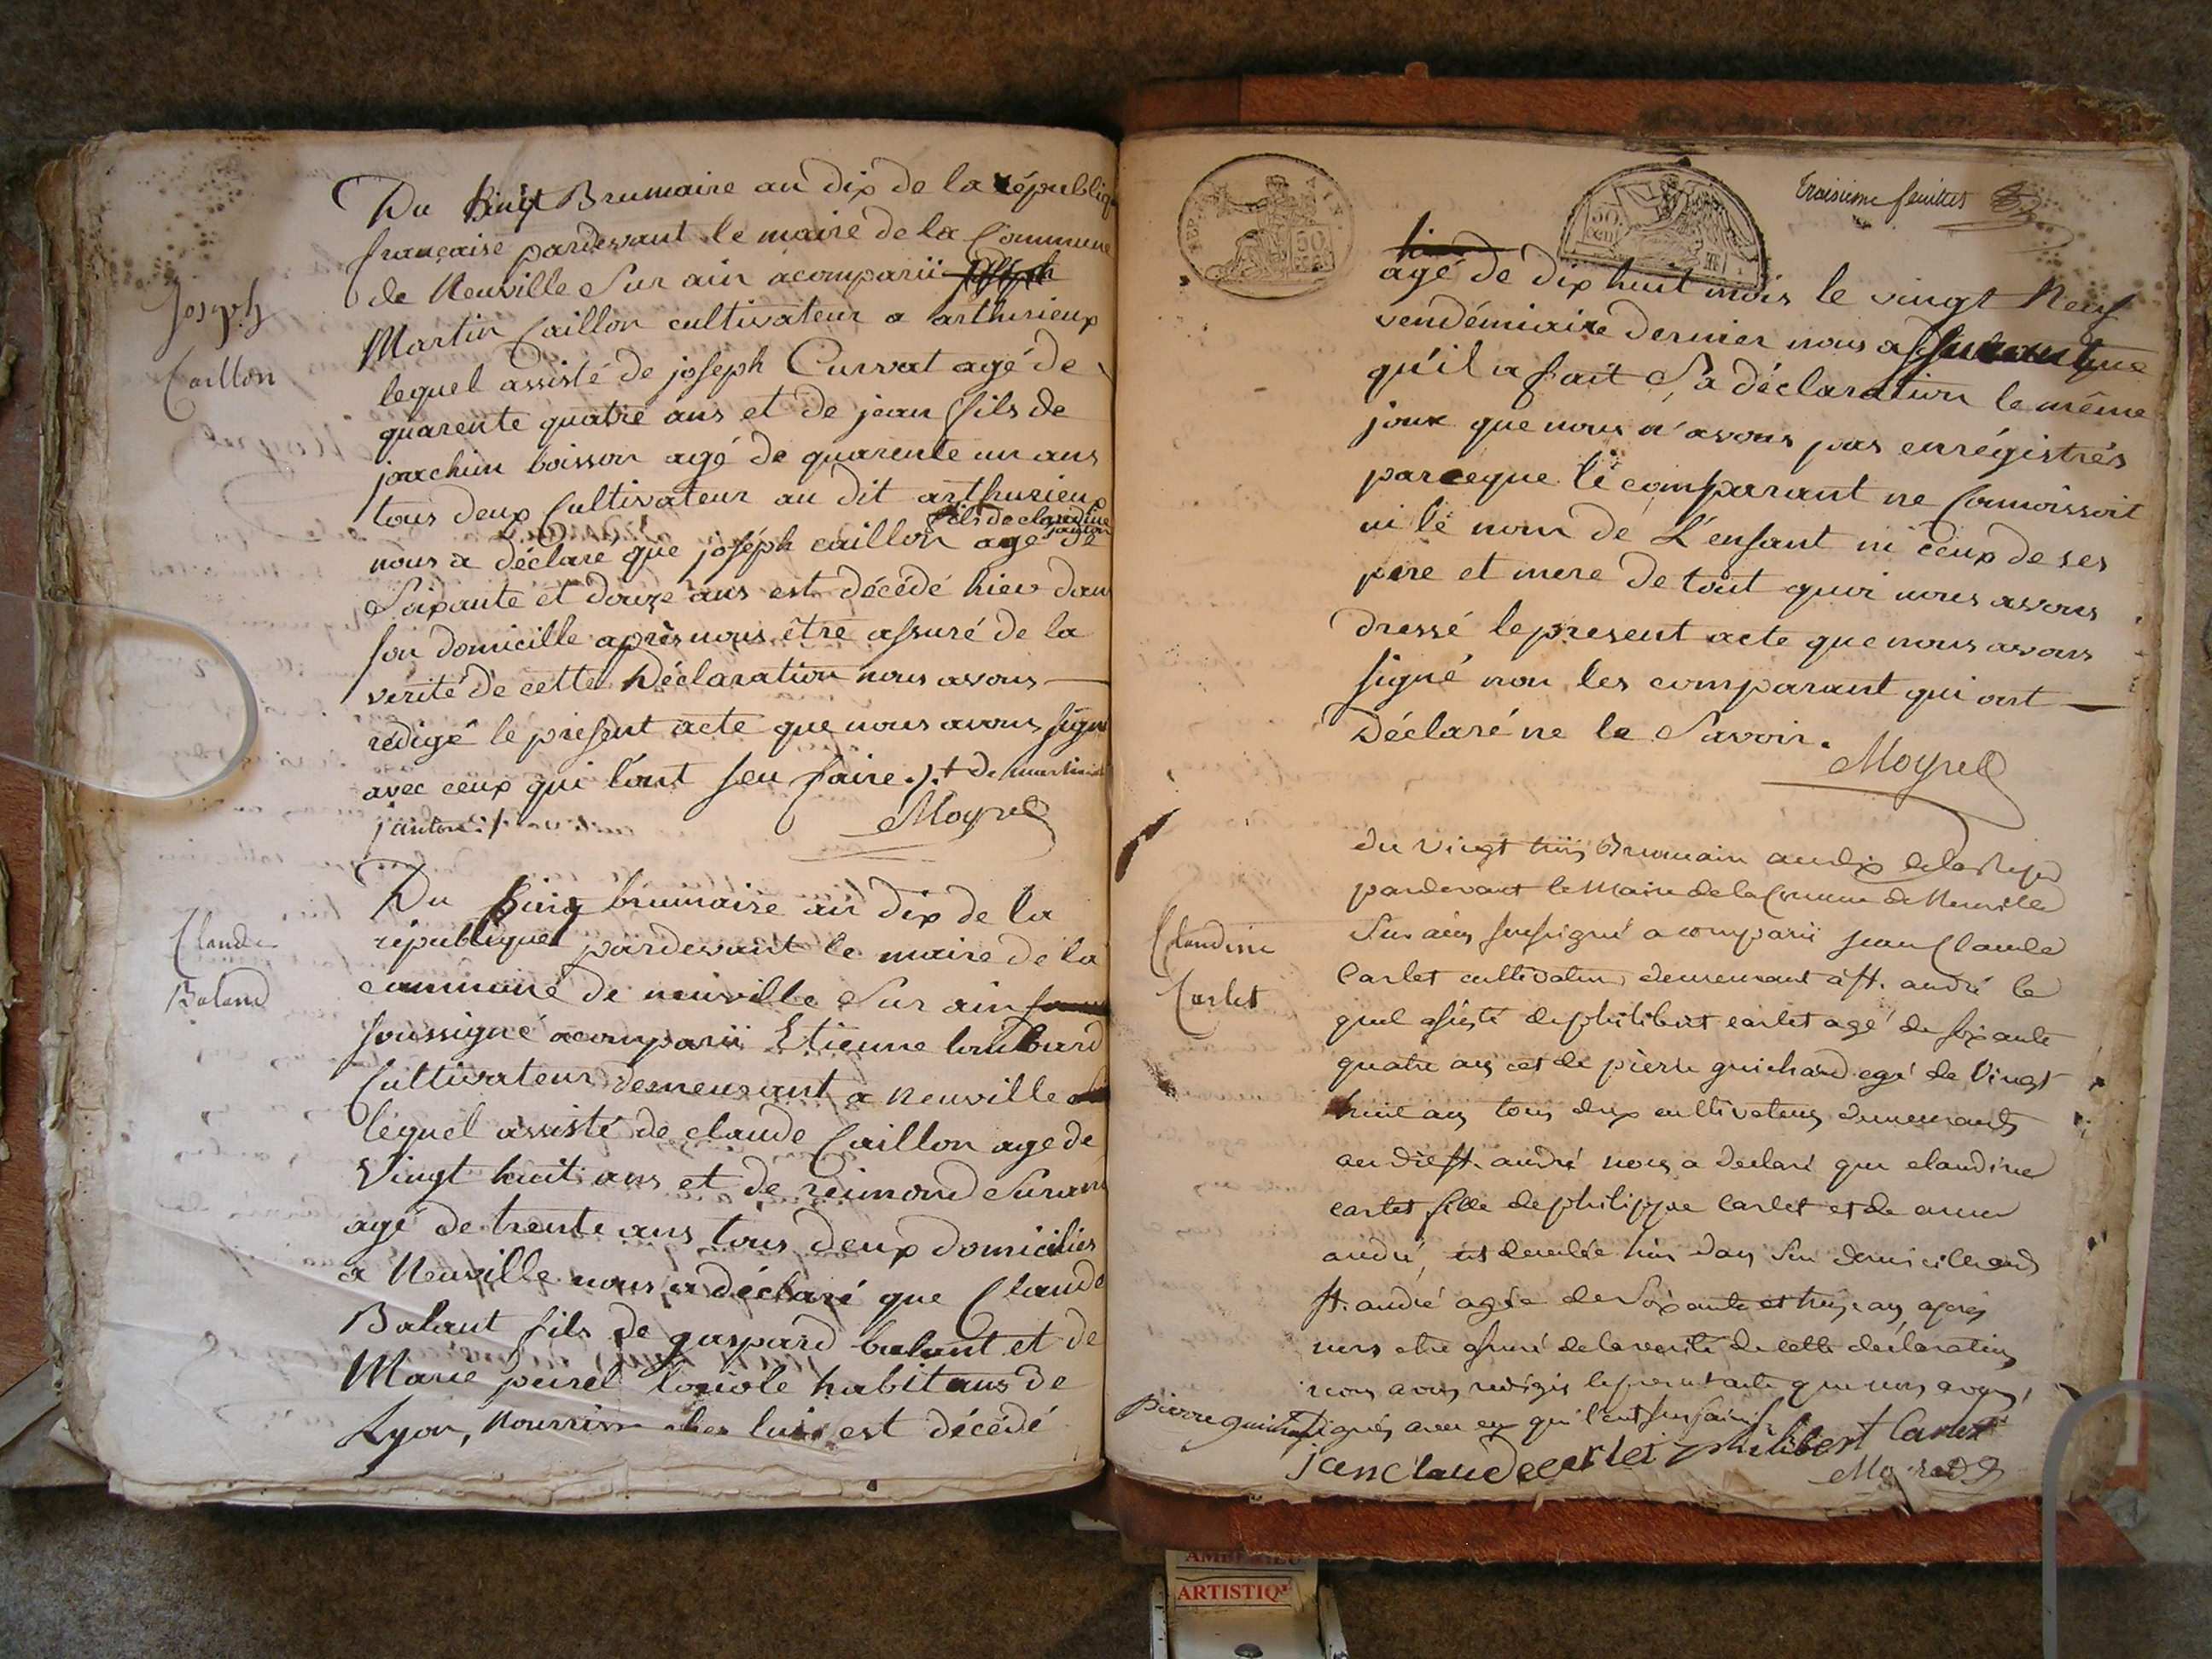 Joseph
Caillon
Du Cinq Brumaire an dix de la républiq
française pardevant le maire de la Commune
de Neuville Sur ain acomparü joseph
Martin Caillon cultivateur a arthurieux
lequel assisté de joseph Curvat agé de
quarente quatre ans et de jean fils de
joachim boisson agé de quarente un ans
tous deux Cultivateur au dit arthurieux
fils de claudine
janton
nous a déclaré que joséph caillon agé de
Soixante et douze ans est décédé hier dans
son domicille après nous être assuré de la
verité de cette Déclaration nous avons
rédigé le present acte que nous avons signé
avec ceux qui l'ont seu faire ./. + de
janton ./
Moyret
Claude
Baland
Du Cinq brumaire an dix de la
république pardevant le maire de la
commune de neuville Sur ain
soussigné acomparü Etienne lombard
Cultivateur demeurant a neuville
lequel assisté de claude Caillon age de
Vingt huit ans et de reimond Suran
agé de trente ans tous deux domiciliés
a Neuville nous a déclaré que Claude
Balant fils de gaspard balant et de
Marie peirel loriole habitans de
Lyon, nourrisson chez lui est décédé
troisieme feuillet
REP FRA
50
50 cen
agé de dix huit mois le vingt Neuf
vendémiaire dernier nous
qu'il a fait Sa déclaration le même
jour que nous n'avons pas enrégistrés
parceque le comparant ne Connoissoit
ni le nom de L'enfant ni ceux de ses
pere et mere de tout quoi nous avons
dressé le present acte que nous avons
signé non les comparant qui ont
Déclaré ne le Savoir.
Moyret
Claudine
Carlet
du vingt trois Brumaire an dix de la Rep
pardevant le Maire de la Commune de Neuville
Sur ain soussigné a comparü jean Claude
Carlet cultivateur demeurant à st. andré le
quel assisté de philibert carlet agé de soixante
quatre ans et de pierre guichard agé de Vingt
huit ans tous deux cultivateurs demeurants
au dit st. andré nous a declaré que claudine
carlet fille de philippe Carlet et de anne
andré, est decedée hier dans Son domicille aud
st. andré agée de Soixante et treize ans apres
nous etre assuré de la verité de cette déclaration
nous avons redigés le present acte que nous avons
signés avec eux qui l'ont seu faire
pierre guichard
jean claude carlet philibert Carlet
Moyret
AMBERIEU
ARTISTIQ